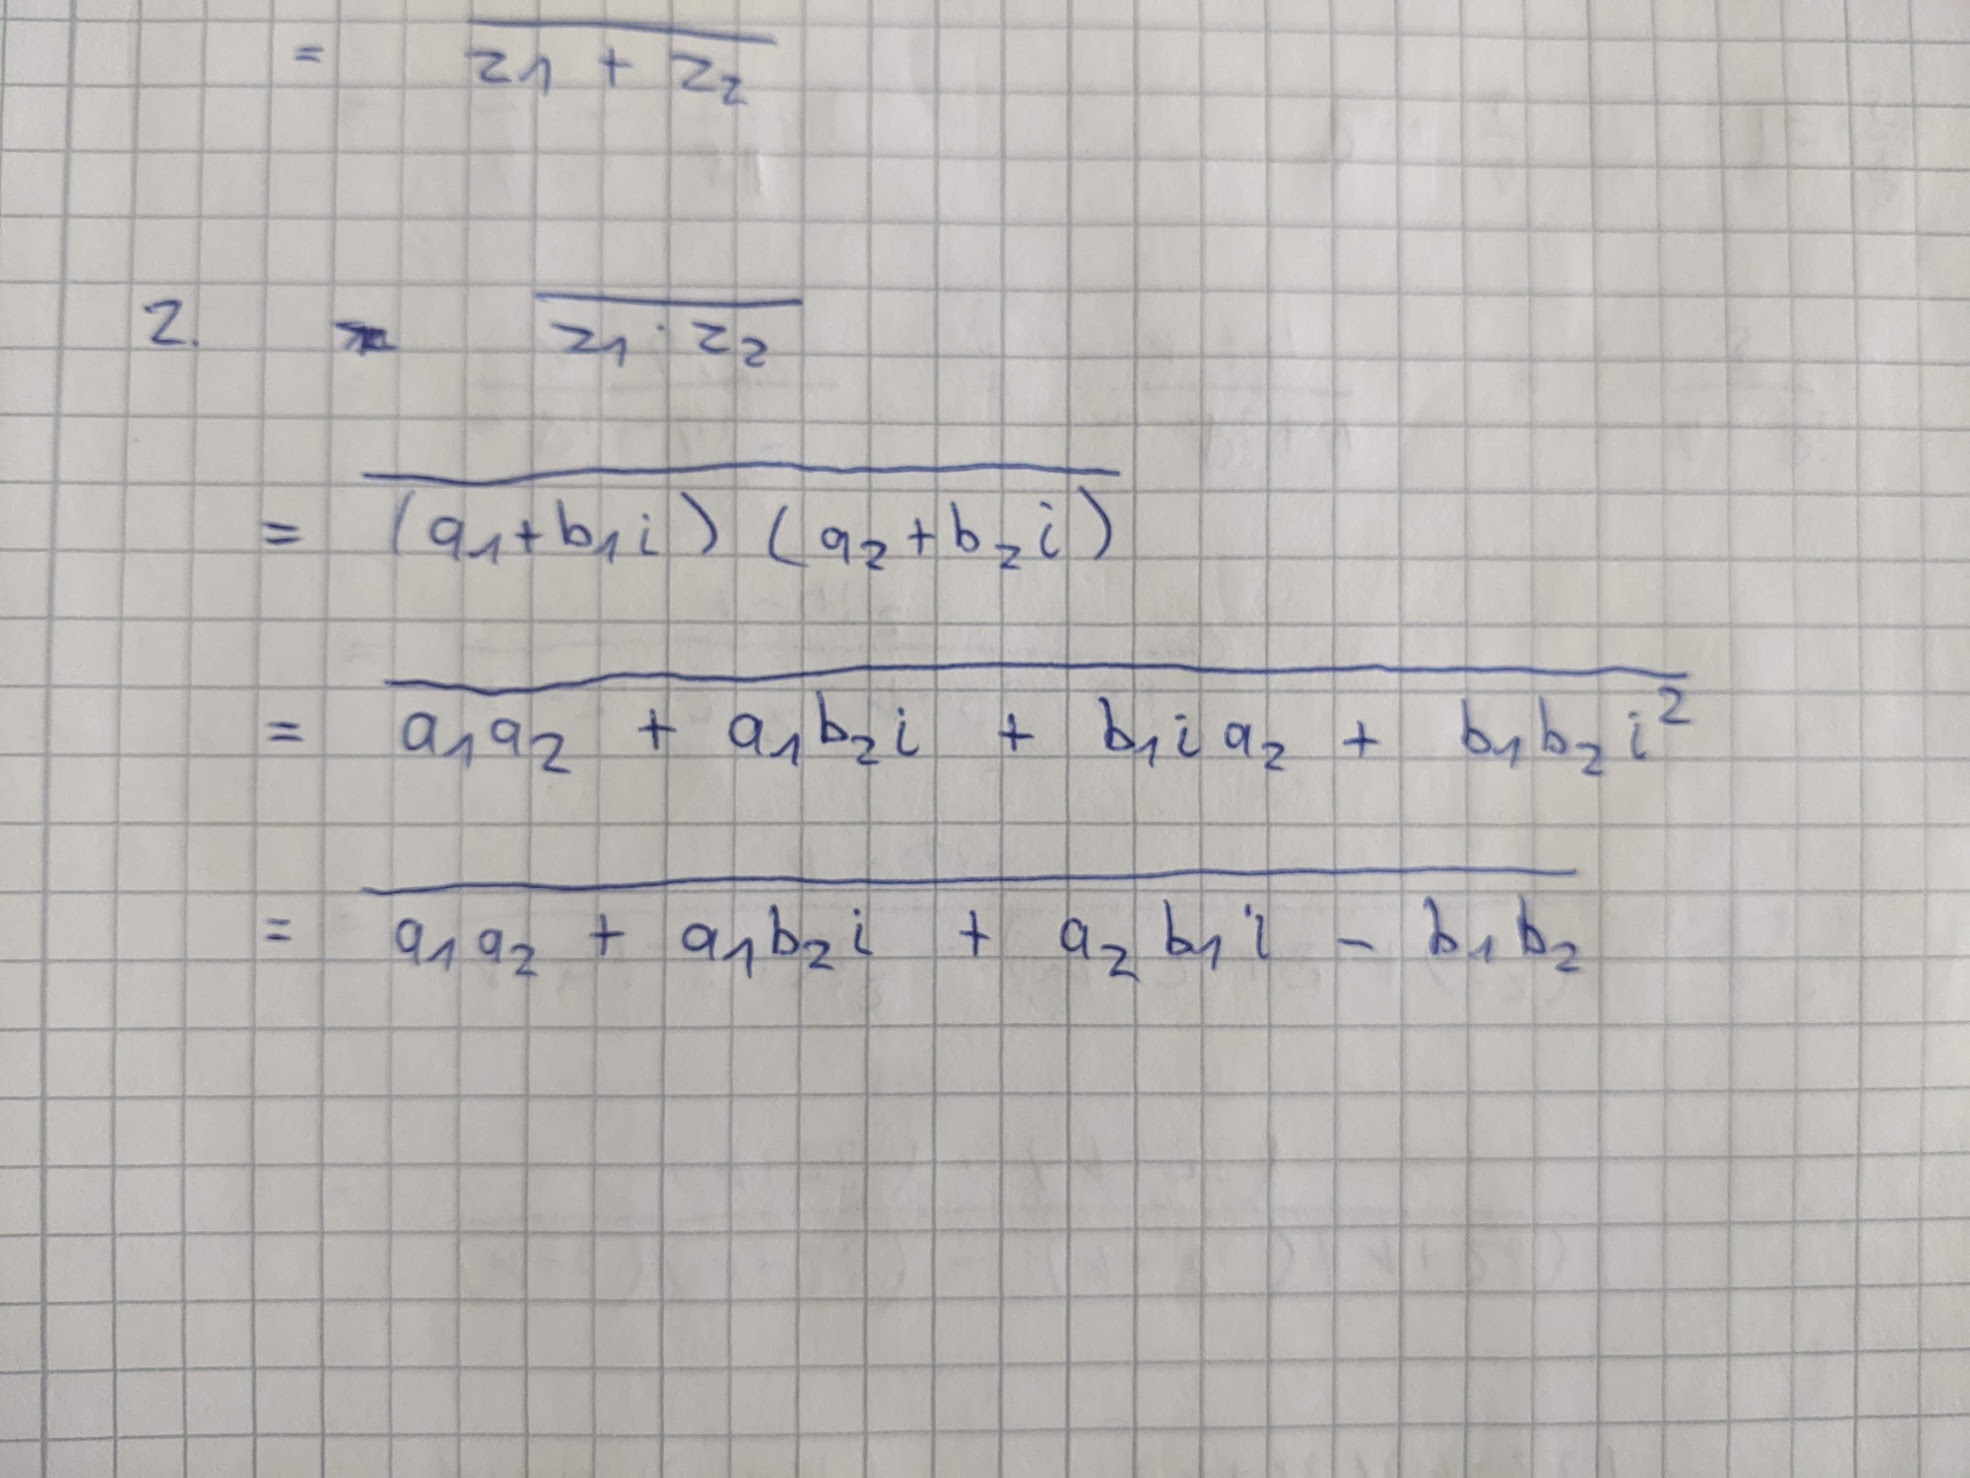 = \overline{z_1 + z_2}
2. \overline{z_1 \cdot z_2}
= \overline{(a_1+b_1i)(a_2+b_2i)}
= \overline{a_1a_2 + a_1b_2i + b_1ia_2 + b_1b_2i^2}
= \overline{a_1a_2 + a_1b_2i + a_2b_1i - b_1b_2}